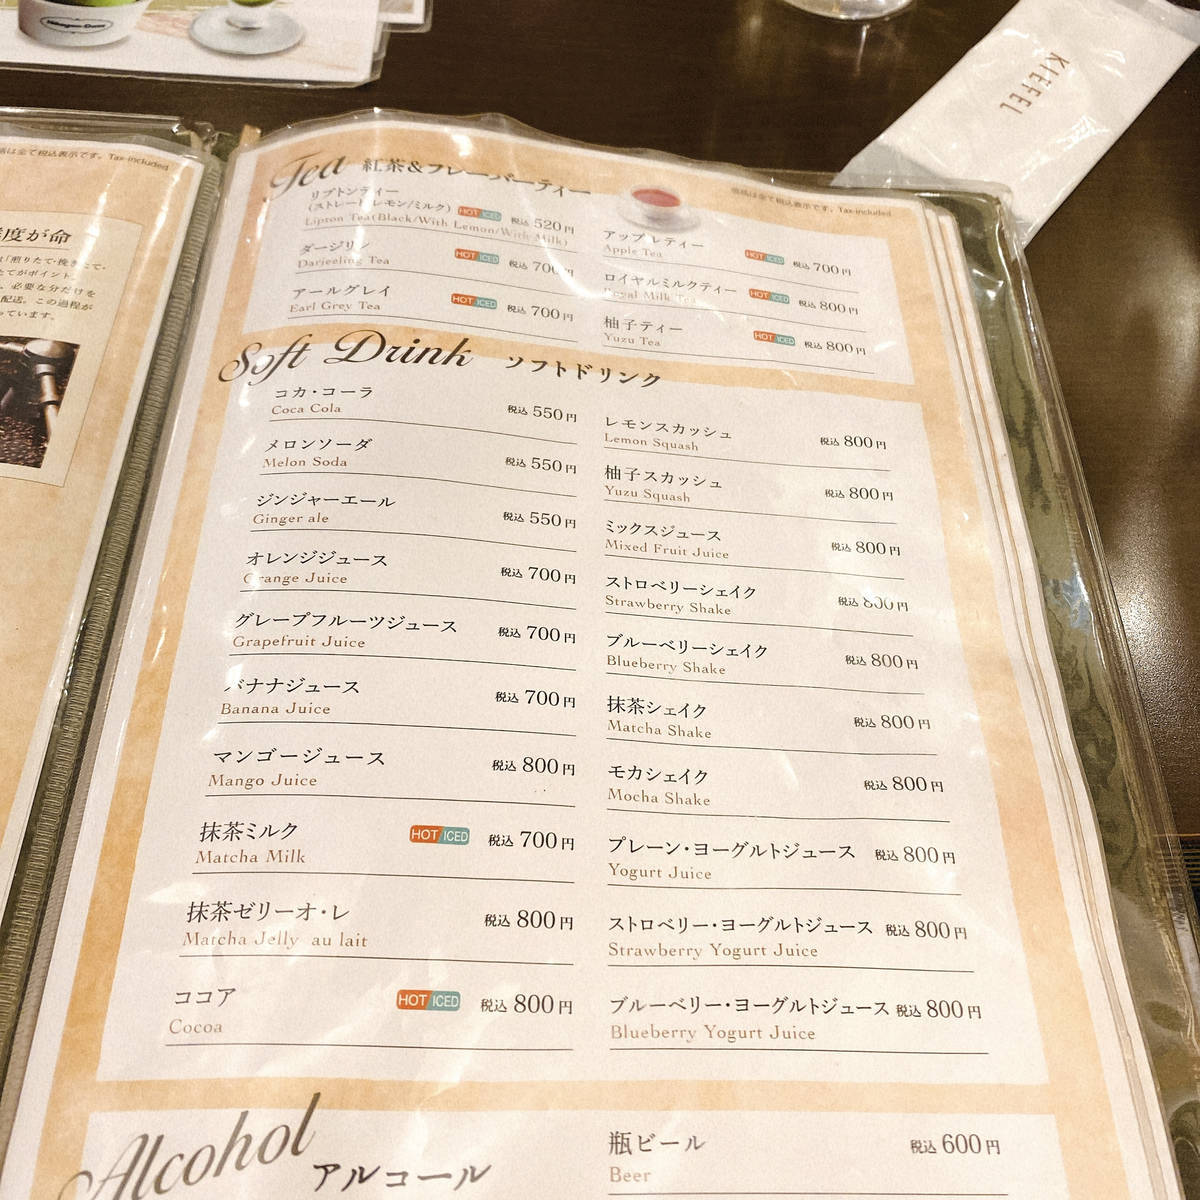 Häagen-Dazs
KIEFFEL
は全て税込表示です。Tax-included
度が命
「煎りたて・挽きたて・
たてがポイント。
、必要な分だけを
配送。この過程が
っています。
Tea 紅茶&フレーバーティー
価格は全て税込表示です。Tax-included
リプトンティー
(ストレート/レモン/ミルク) HOT/ICED 税込 520円
Lipton Tea(Black/With Lemon/With Milk)
ダージリン HOT/ICED 税込 700円
Darjeeling Tea
アールグレイ HOT/ICED 税込 700円
Earl Grey Tea
アップルティー HOT/ICED 税込 700円
Apple Tea
ロイヤルミルクティー HOT/ICED 税込 800円
Royal Milk Tea
柚子ティー HOT/ICED 税込 800円
Yuzu Tea
Soft Drink ソフトドリンク
コカ・コーラ 税込 550円
Coca Cola
メロンソーダ 税込 550円
Melon Soda
ジンジャーエール 税込 550円
Ginger ale
オレンジジュース 税込 700円
Orange Juice
グレープフルーツジュース 税込 700円
Grapefruit Juice
バナナジュース 税込 700円
Banana Juice
マンゴージュース 税込 800円
Mango Juice
抹茶ミルク HOT/ICED 税込 700円
Matcha Milk
抹茶ゼリーオ・レ 税込 800円
Matcha Jelly au lait
ココア HOT/ICED 税込 800円
Cocoa
レモンスカッシュ 税込 800円
Lemon Squash
柚子スカッシュ 税込 800円
Yuzu Squash
ミックスジュース 税込 800円
Mixed Fruit Juice
ストロベリーシェイク 税込 800円
Strawberry Shake
ブルーベリーシェイク 税込 800円
Blueberry Shake
抹茶シェイク 税込 800円
Matcha Shake
モカシェイク 税込 800円
Mocha Shake
プレーン・ヨーグルトジュース 税込 800円
Yogurt Juice
ストロベリー・ヨーグルトジュース 税込 800円
Strawberry Yogurt Juice
ブルーベリー・ヨーグルトジュース 税込 800円
Blueberry Yogurt Juice
Alcohol アルコール
瓶ビール 税込 600円
Beer